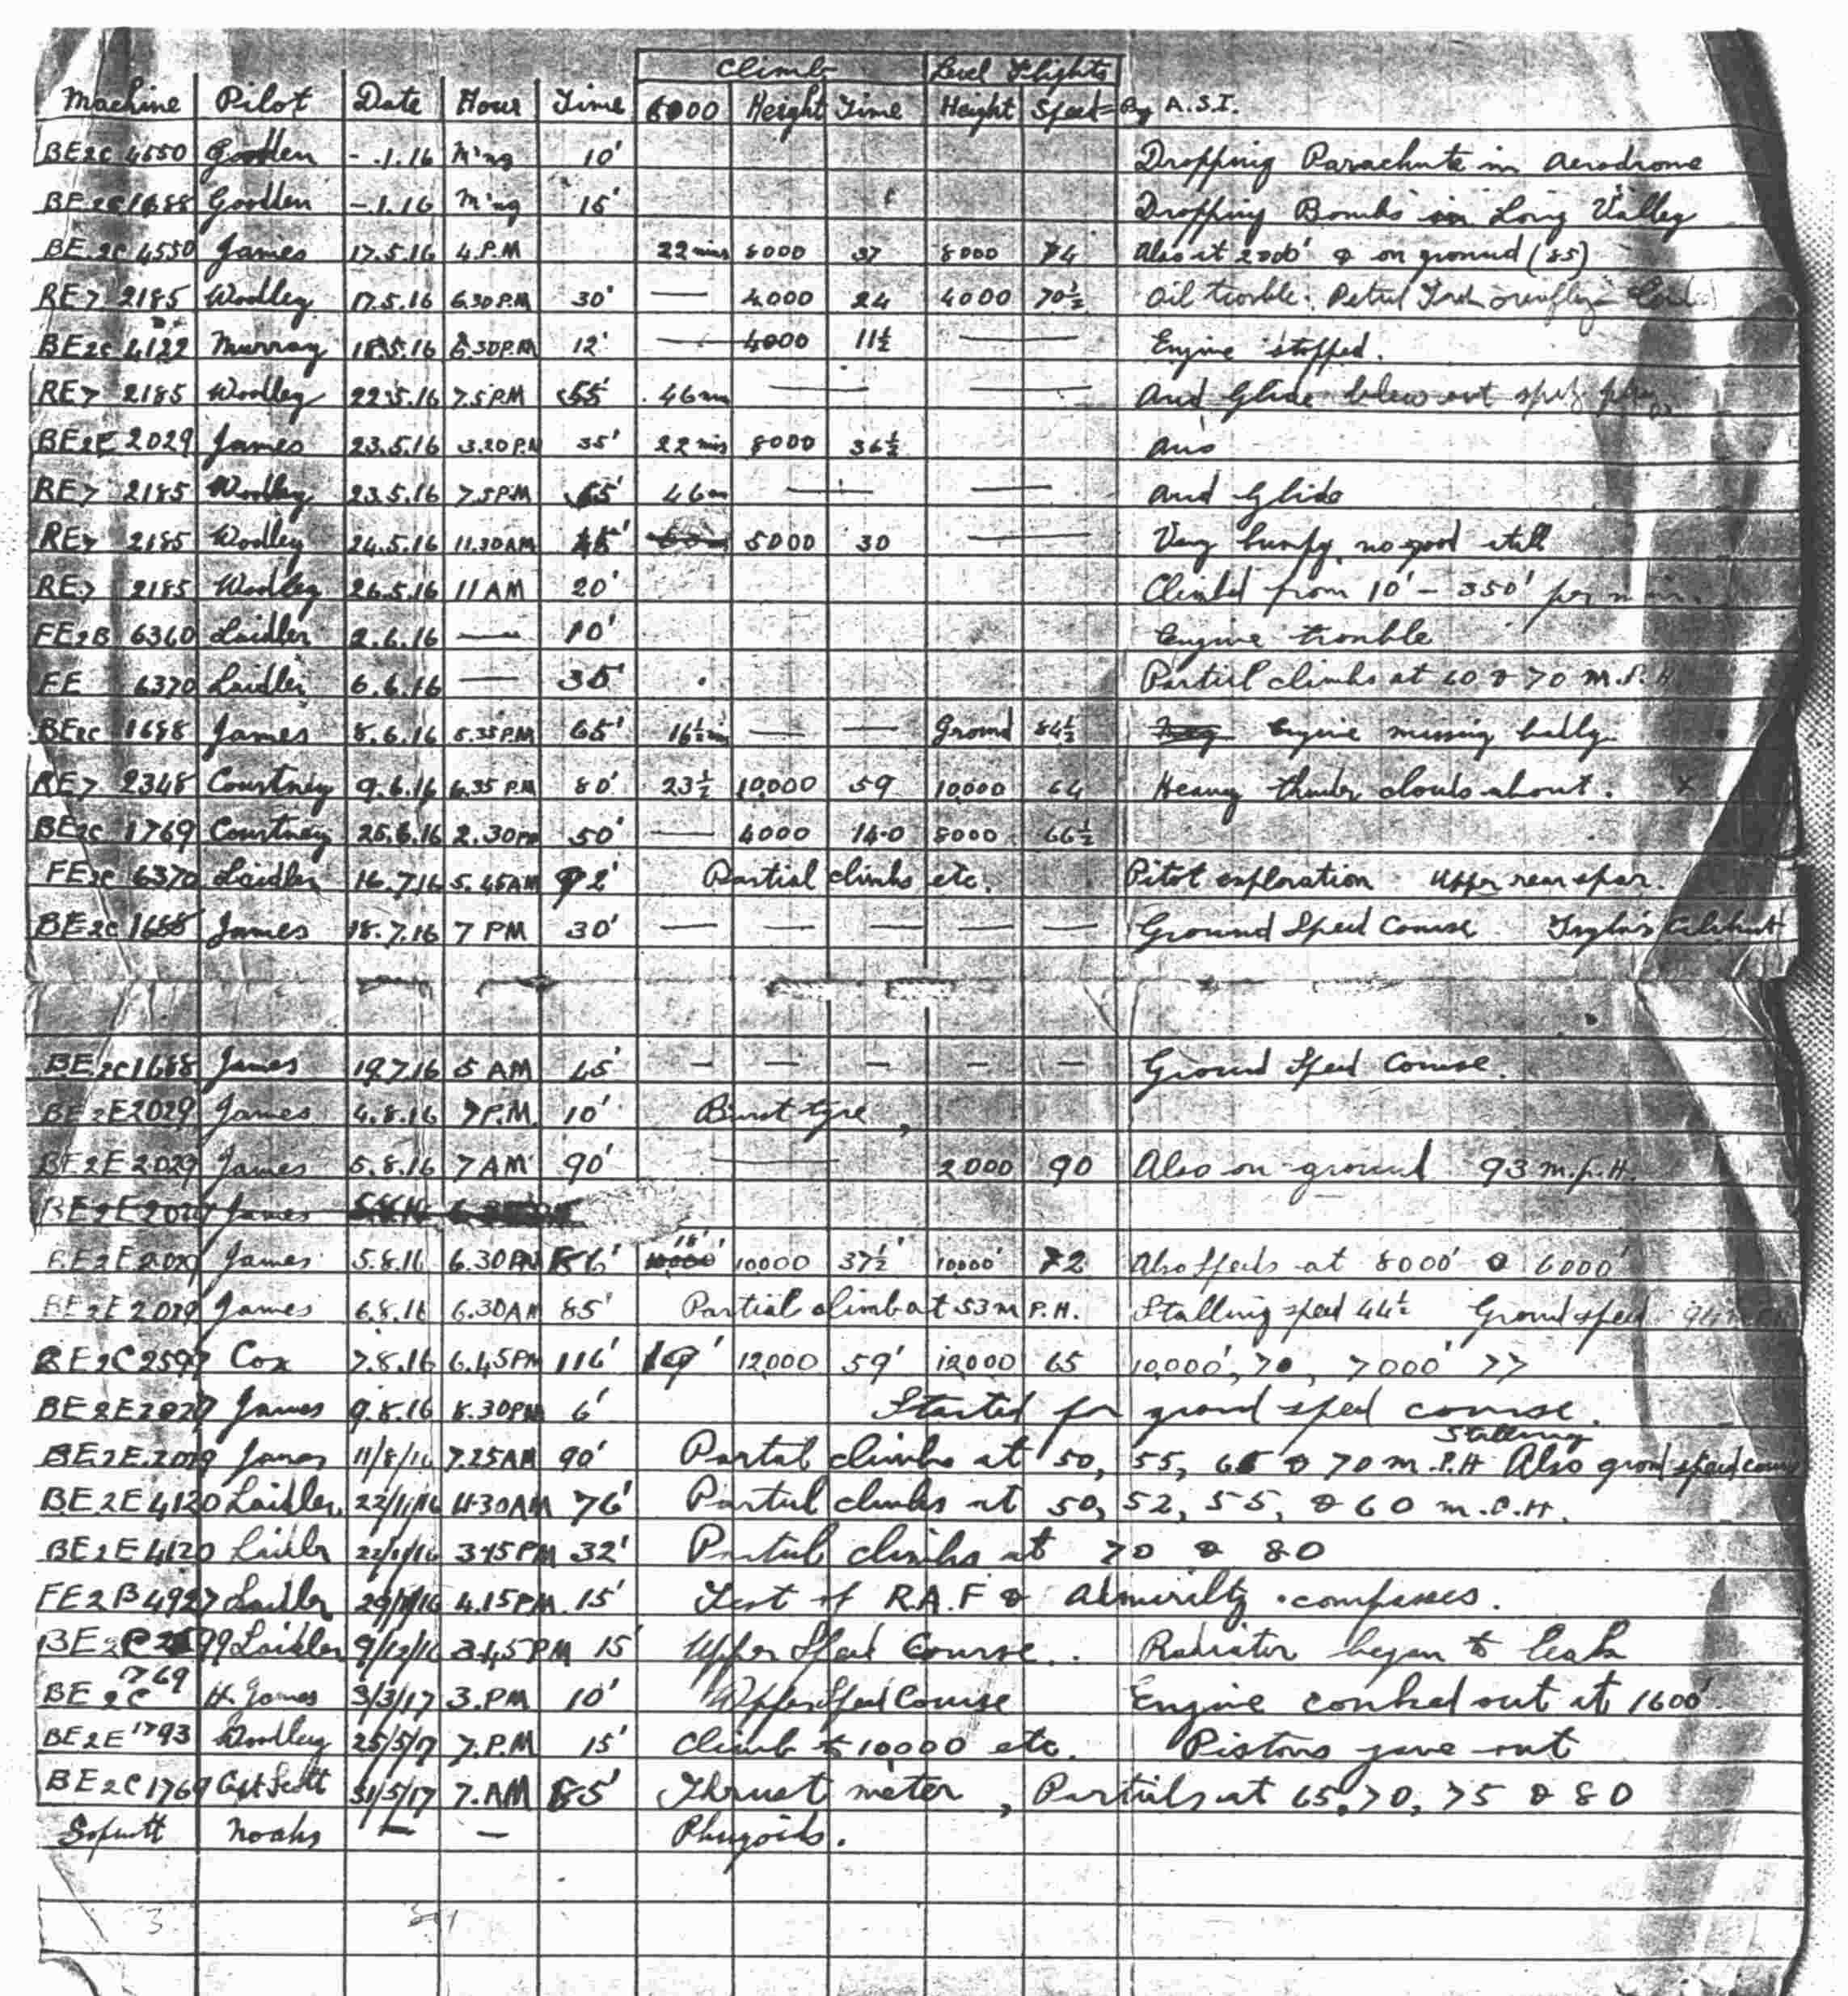 Climb Level Flights
Machine Pilot Date Hour Time 6000 Height Time Height Speed = By A.S.I.
BE2C 4550 Goodden - .1.16 M'ng 10' Dropping Parachute in Aerodrome
BE2C 1688 Goodden - .1.16 M'ng 15' Dropping Bombs in Long Valley
BE2C 4550 James 17.5.16 4.P.M 22 mins 8000 37 8000 74 Also at 2000' & on ground (85)
RE7 2185 Woolley 17.5.16 6.30 P.M 30' — 4000 24 4000 70½ Oil trouble. Petrol
BE2C 4122 Murray 18.5.16 6.30P.M 12' — 4000 11½ — Engine stopped.
RE7 2185 Woolley 22.5.16 7.5PM 55' 46 — — And Glide blew out
BE2E 2029 James 23.5.16 3.20 P.M 35' 22 mins 8000 36½
RE7 2185 Woolley 23.5.16 7.5PM 55' 46m — — And Glide
RE7 2185 Woolley 24.5.16 11.30AM 45' 5000 30 — Very bumpy, no good still
RE7 2185 Woolley 26.5.16 11 AM 20' Climbed from 10' - 350' per min.
FE2B 6360 Laidler 2.6.16 — 10' Engine trouble
FE 6370 Laidler 6.6.16 — 35' Partial climbs at 60 & 70 M.P.H
BE2C 1688 James 8.6.16 5.35P.M 65' 16½ — — Ground 84½ Engine missing badly
RE7 2348 Courtney 9.6.16 6.35 PM 80' 23½ 10,000 59 10,000 64 Heavy thunder clouds about. x
BE2C 1769 Courtney 25.6.16 2.30PM 50' — 4000 14.0 8000 66½
FE2C 6370 Laidler 16.7.16 5.45AM 92' Partial climbs etc. Pitot exploration upper rear spar.
BE2C 1688 James 18.7.16 7 PM 30' — — — — — Ground Speed Course.
BE2C 1688 James 19.7.16 5 AM 45' — — — — — Ground Speed Course.
BE2E 2029 James 4.8.16 7P.M. 10' Burst tyre,
BE2E 2029 James 5.8.16 7 AM 90' — 2000 90 Also on ground 93 m.p.H.
BE2E 2029 James
BE2E 2029 James 5.8.16 6.30PM 56' 18' 10000 37½' 10,000' 72 Also Speeds at 8000' & 6000'
BE2E 2029 James 6.8.16 6.30AM 85' Partial climb at 53 M.P.H. Stalling speed 44½ Ground speed
BE2C 2597 Cox 7.8.16 6.45PM 116' 12,000 59' 12,000 65 10,000', 70, 7000' 77
BE2E 2029 James 9.8.16 8.30PM 6' Started for ground speed course.
Stalling
BE2E 2029 James 11/8/16 7.25AM 90' Partial climbs at 50, 55, 65 & 70 M.P.H Also ground speed course
BE2E 4120 Laidler 22/11/16 11.30AM 76' Partial climbs at 50, 52, 55, & 60 M.P.H.
BE2E 4120 Laidler 22/11/16 3.45PM 32' Partial climbs at 70 & 80
FE2B 4927 Laidler 29/11/16 4.15PM 15' Test of R.A.F & Admiralty compasses.
BE2C Laidler 9/12/16 3.45PM 15' Upper Speed Course. Radiator began to leak
BE2C 1769 H. James 3/3/17 3.PM 10' Upper Speed Course Engine conked out at 1600'
BE2E 1793 Woolley 25/5/17 7.P.M 15' Climb to 10,000 etc. Pistons gave out
BE2C 1769 Capt Scott 31/5/17 7.AM 85' Thrust meter, Partials at 65, 70, 75 & 80
Sopwith Noaks — — Phugoids.
3